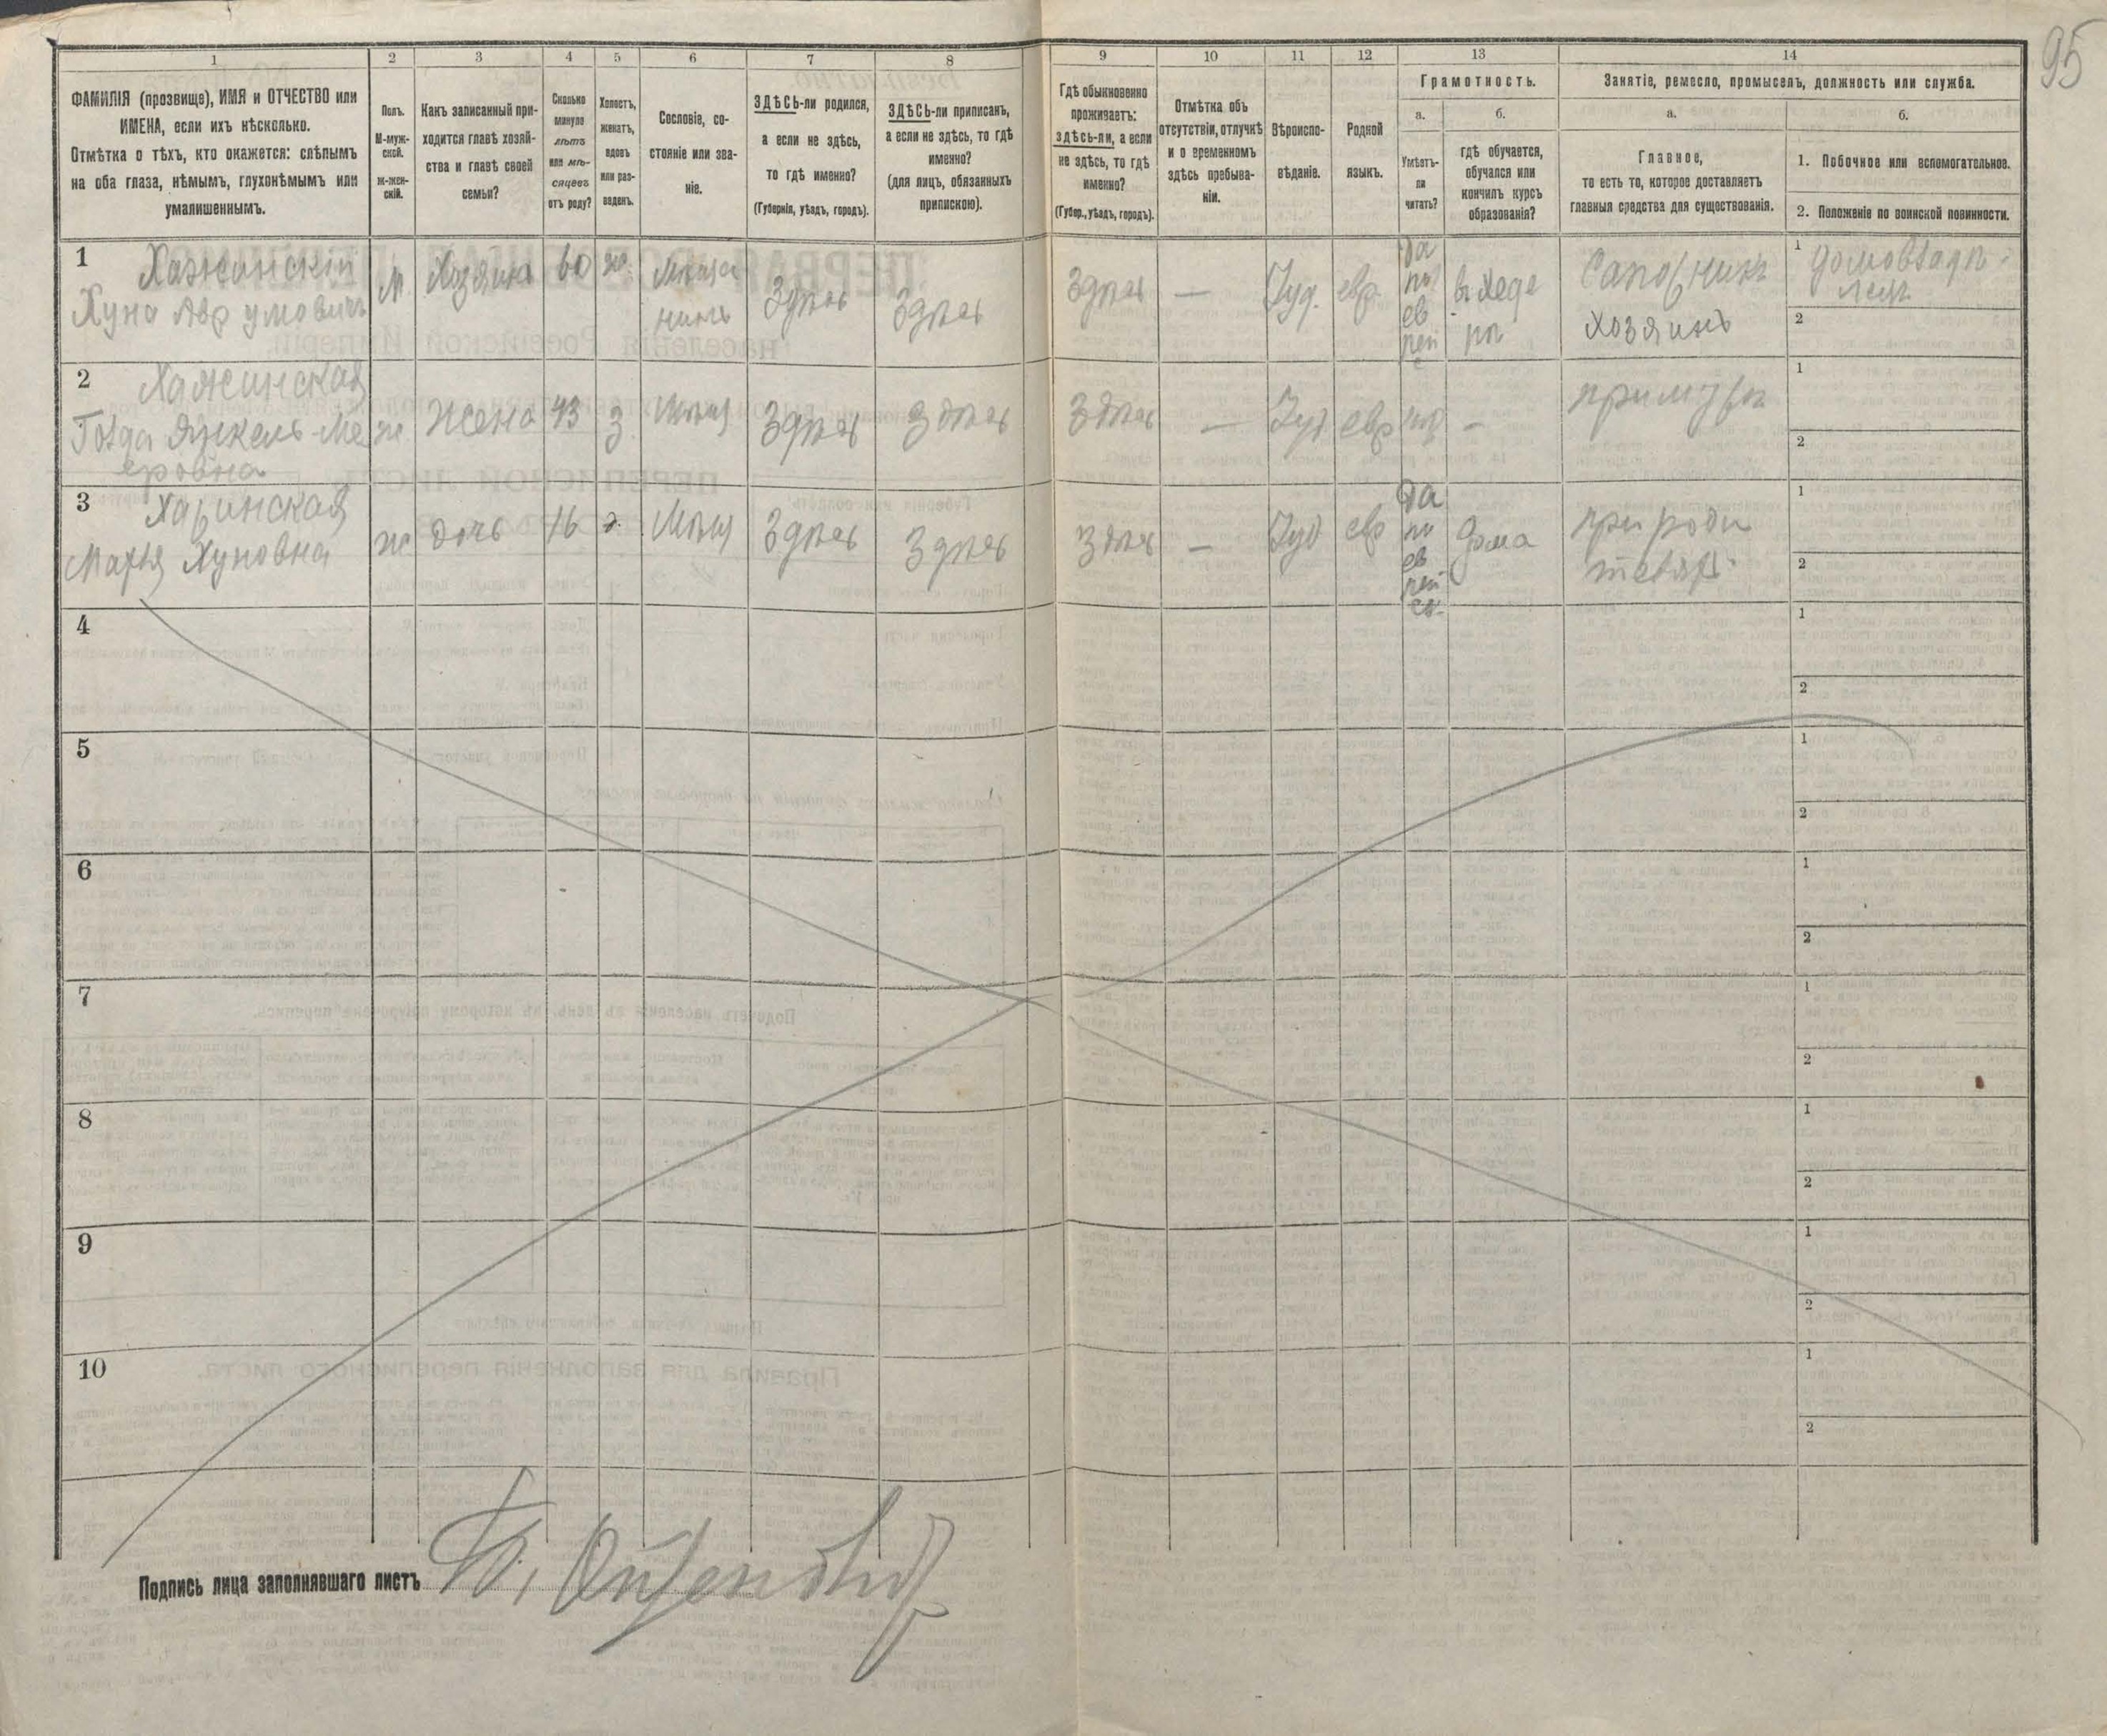 95
1
2
3
4
5
6
7
8
9
10
11
12
13
14
ФАМИЛІЯ (прозвище), ИМЯ и ОТЧЕСТВО или
ИМЕНА, если ихъ нѣсколько.
Отмѣтка о тѣхъ, кто окажется: слѣпымъ
на оба глаза, нѣмымъ, глухонѣмымъ или
умалишеннымъ.
Полъ.
М-муж-
ской.
Ж-жен-
скій.
Какъ записанный при-
ходится главѣ хозяй-
ства и главѣ своей
семьи?
Сколько
минуло
лѣтъ
или мѣ-
сяцевъ
отъ роду?
Холостъ,
женатъ,
вдовъ
или раз-
веденъ.
Сословіе, со-
стояніе или зва-
ніе.
ЗДѢСЬ-ли родился,
а если не здѣсь,
то гдѣ именно?
(Губернія, уѣздъ, городъ).
ЗДѢСЬ-ли приписанъ,
а если не здѣсь, то гдѣ
именно?
(для лицъ, обязанныхъ
припискою).
Гдѣ обыкновенно
проживаетъ:
здѣсь-ли, а если
не здѣсь, то гдѣ
именно?
(Губер., уѣздъ, городъ).
Отмѣтка объ
отсутствіи, отлучкѣ
и о временномъ
здѣсь пребыва-
ніи.
Вѣроиспо-
вѣданіе.
Родной
языкъ.
Грамотность.
а.
Умѣетъ-
ли
читать?
б.
гдѣ обучается,
обучался или
кончилъ курсъ
образованія?
Занятіе, ремесло, промыселъ, должность или служба.
а.
Главное,
то есть то, которое доставляетъ
главныя средства для существованія.
б.
1. Побочное или вспомогательное.
2. Положеніе по воинской повинности.
1
Хажинскій
Хуна Аврумовичъ
М
Хозяинъ
60
ж.
Мѣща
нинъ
Здѣсь
Здѣсь
Здѣсь
—
Іуд.
евр.
да
по
ев
рей
в хеде
рѣ
Сапожникъ
хозяинъ
1
домовладѣ-
лецъ
2
2
Хажинская
Янкель-Ме
еровна
ж
Жена
43
з.
Мѣщ
Здѣсь
Здѣсь
Здѣсь
—
Іуд
евр
—
при мужѣ
1
2
3
Хажинская
Хуновна
ж
дочь
16
д.
Мѣщ
Здѣсь
Здѣсь
Здѣсь
—
Іуд
евр
да
по
ев
рей
ск.
дома
при роди
теляхъ
1
2
4
1
2
5
1
2
6
1
2
7
1
2
8
1
2
9
1
2
10
1
2
Подпись лица заполнявшаго листъ